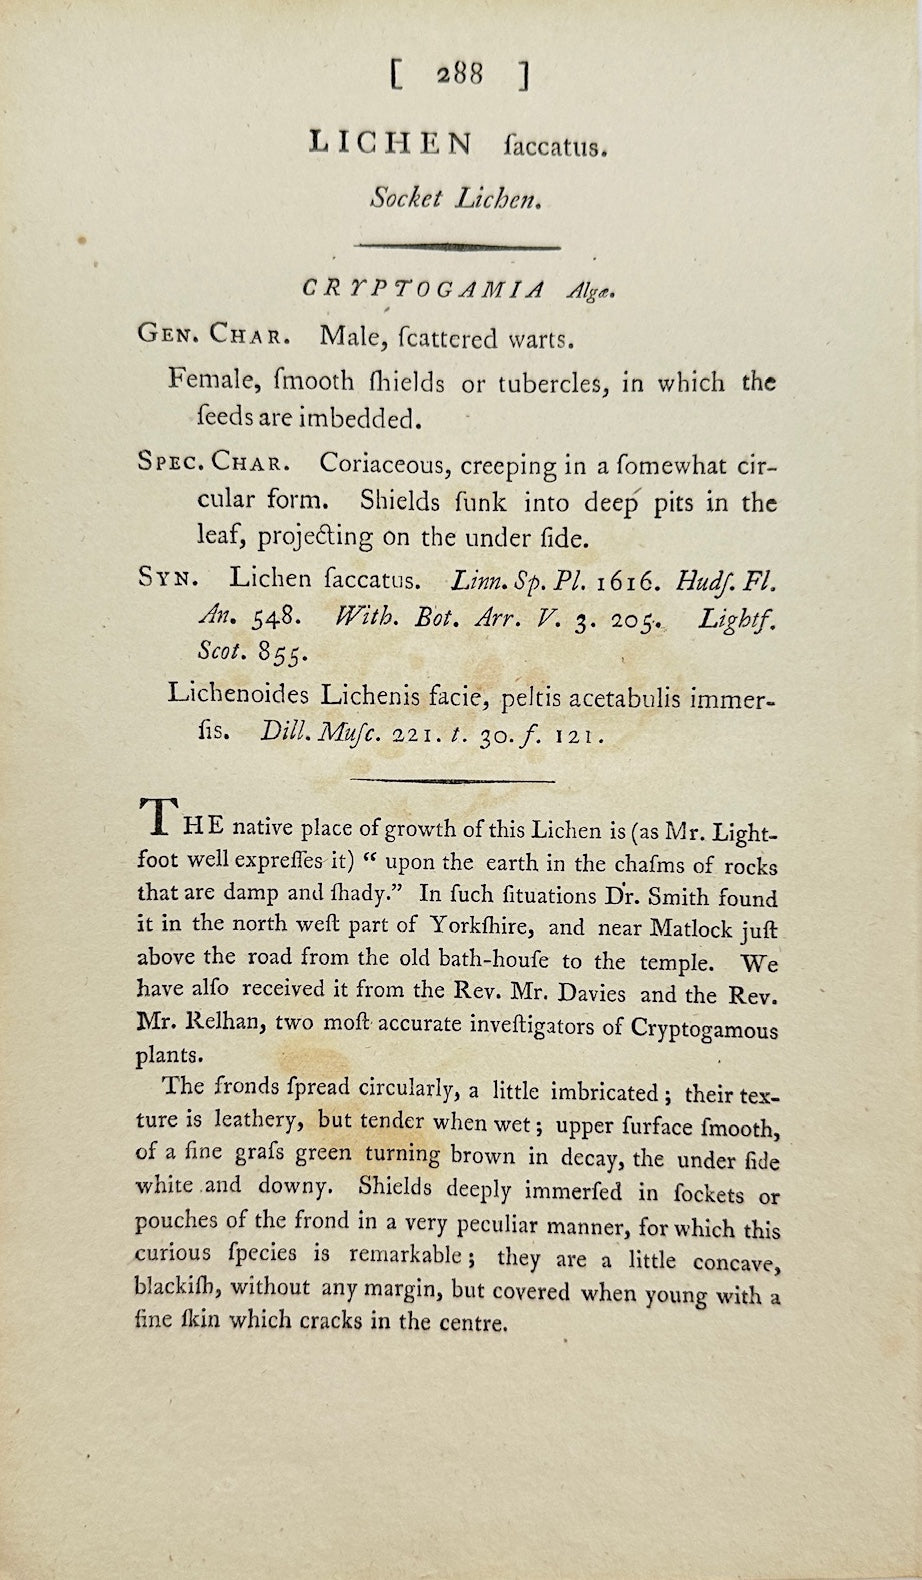 [ 288 ]
LICHEN ſaccatus.
Socket Lichen.
CRYPTOGAMIA Algæ.
GEN. CHAR. Male, ſcattered warts.
Female, ſmooth ſhields or tubercles, in which the
ſeeds are imbedded.
SPEC. CHAR. Coriaceous, creeping in a ſomewhat cir-
cular form. Shields ſunk into deep pits in the
leaf, projecting on the under ſide.
SYN. Lichen ſaccatus. Linn. Sp. Pl. 1616. Hudſ. Fl.
An. 548. With. Bot. Arr. V. 3. 205. Lightf.
Scot. 855.
Lichenoides Lichenis facie, peltis acetabulis immer-
ſis. Dill. Muſc. 221. t. 30. f. 121.
THE native place of growth of this Lichen is (as Mr. Light-
foot well expreſſes it) “ upon the earth in the chaſms of rocks
that are damp and ſhady.” In ſuch ſituations Dr. Smith found
it in the north weſt part of Yorkſhire, and near Matlock juſt
above the road from the old bath-houſe to the temple. We
have alſo received it from the Rev. Mr. Davies and the Rev.
Mr. Relhan, two moſt accurate inveſtigators of Cryptogamous
plants.
The fronds ſpread circularly, a little imbricated ; their tex-
ture is leathery, but tender when wet ; upper ſurface ſmooth,
of a fine graſs green turning brown in decay, the under ſide
white and downy. Shields deeply immerſed in ſockets or
pouches of the frond in a very peculiar manner, for which this
curious ſpecies is remarkable ; they are a little concave,
blackiſh, without any margin, but covered when young with a
fine ſkin which cracks in the centre.